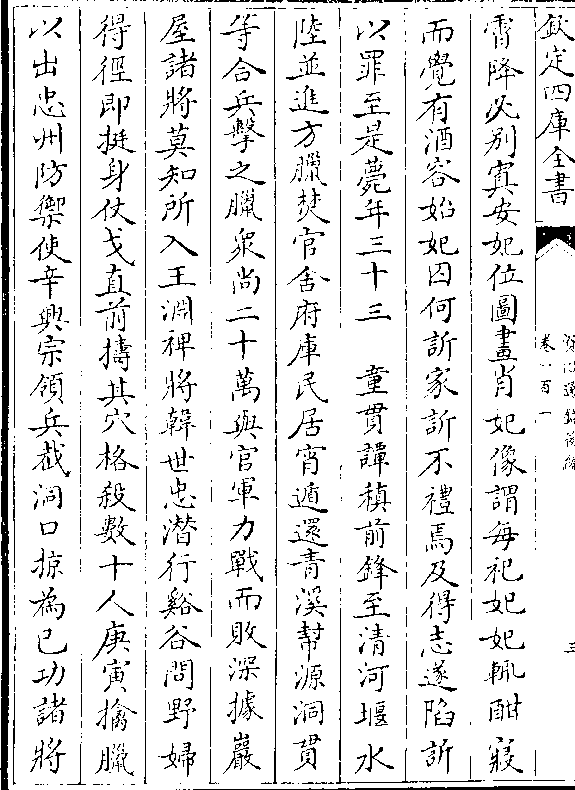 欽定四庫全書
資治通鑑後編
卷一百一
三
霄降必別寘安妃位圖畫肖妃像謂每祀妃妃輒酣寢
而覺有酒容始妃因何訢家訢不禮焉及得志遂陷訢
以罪至是薨年三十三　童貫譚稹前鋒至清河堰水
陸並進方臘焚官舍府庫民居宵遁還青溪幫源洞貫
等合兵擊之臘衆尚二十萬與官軍力戰而敗深據巖
屋諸將莫知所入王淵裨將韓世忠潛行谿谷問野婦
得徑即挺身仗戈直前擣其穴格殺數十人庚寅擒臘
以出忠州防禦使辛興宗領兵截洞口掠為己功諸將